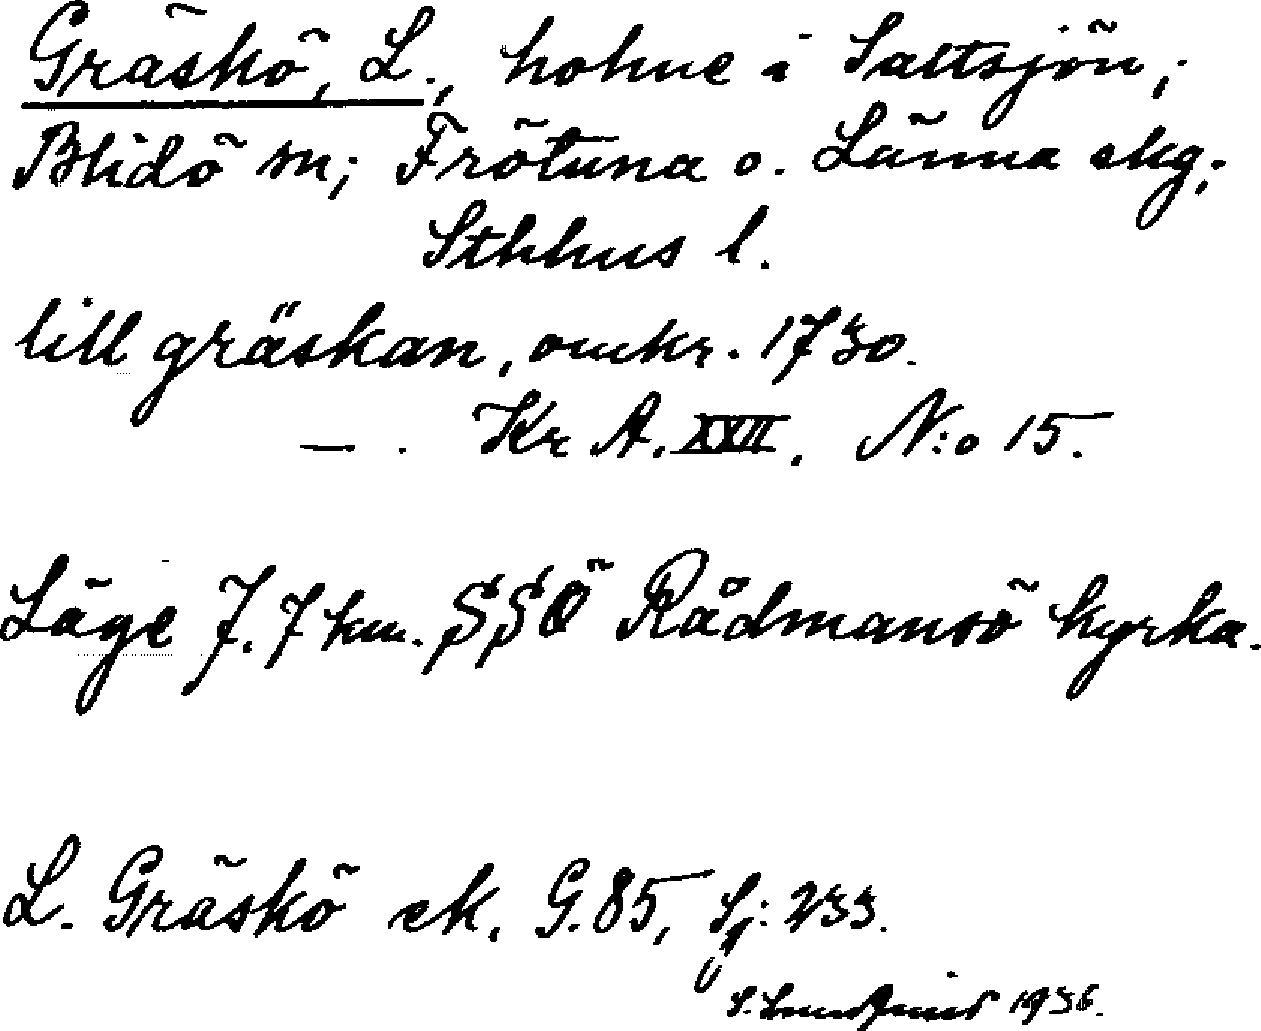 Gräskö, L., holme i Saltsjön;
Blidö sn; Frötuna o. Länna skg;
Sthlms l.
lill gräskan, omkr. 1730.
— . Kr A. XXII. N:o 15.
Läge 7.7 km. SSÖ Rådmansö kyrka.
L. Gräskö ek. G. 85, Sj: 233.
1936.